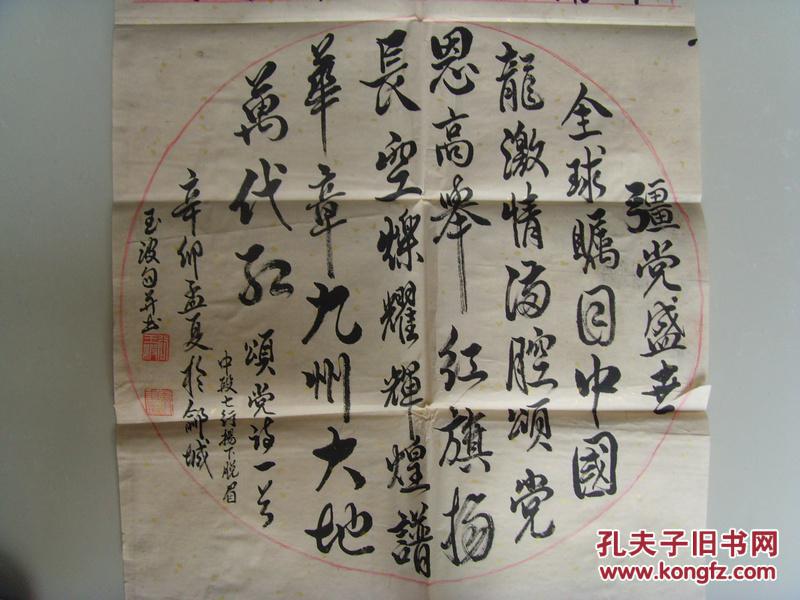 疆党盛世
全球瞩目中國
龍激情滿腔頌党
恩高舉红旗揚
長空爍耀輝煌譜
華章九州大地
萬代红
頌党诗一首
中段七行揚下脱眉
辛卯孟夏於
玉波自并书
孔夫子旧书网
www.kongfz.com